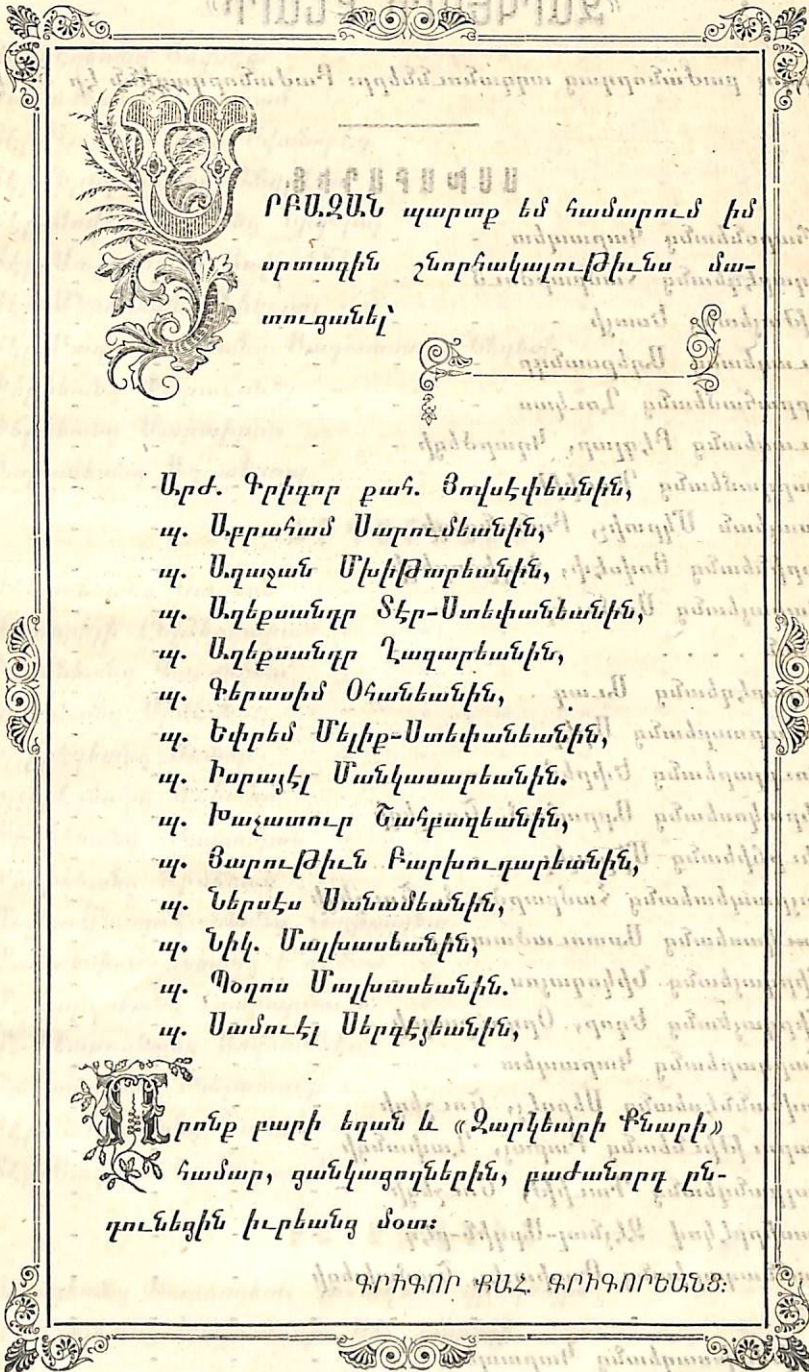 ՍՐԲԱԶԱՆ պարտք եմ համարում իմ
սրտագին շնորհակալութիւնս մա-
տուցանել՝
Արժ. Գրիգոր քահ. Յովսէփեանին,
պ. Աբրահամ Սարումեանին,
պ. Աղաջան Մխիթարեանին,
պ. Աղեքսանդր Տէր-Ստեփանեանին,
պ. Աղեքսանդր Ղազարեանին,
պ. Գերասիմ Օհանեանին,
պ. Եփրեմ Մելիք-Ստեփանեանին,
պ. Իսրայէլ Մանկասարեանին.
պ. Խաչատուր Շահբաղեանին,
պ. Յարութիւն Բարխուդարեանին,
պ. Ներսէս Սանամեանին,
պ. Նիկ. Մալխասեանին,
պ. Պօղոս Մալխասեանին.
պ. Սամուէլ Սերգէյեանին,
Որոնք բարի եղան և «Զարկեարի Քնարի»
համար, ցանկացողներին, բաժանորդ ըն-
դունեցին իւրեանց մօտ։
ԳՐԻԳՈՐ ՔԱՀ. ԳՐԻԳՈՐԵԱՆՑ։